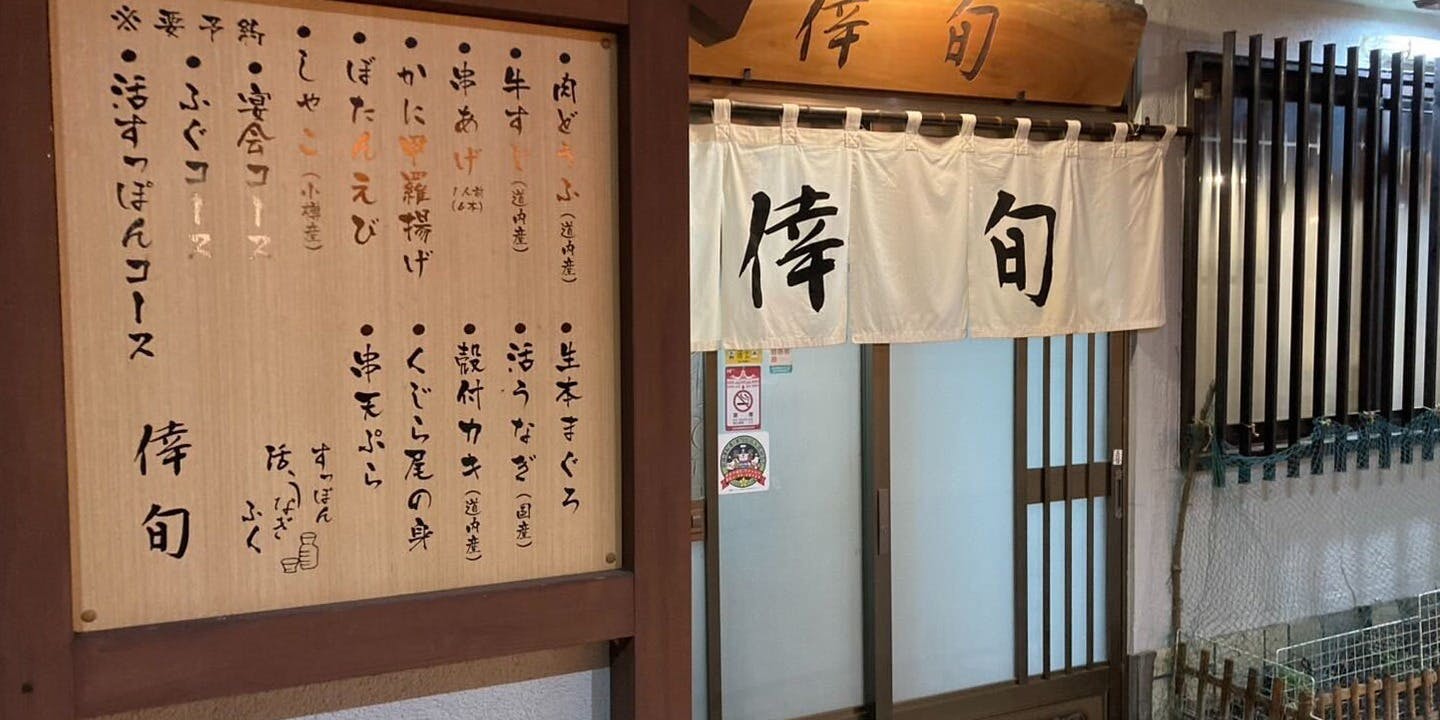 ・肉どうふ(道内産)
・牛すじ(道内産)
・串あげ(1人前(6本))
・かに甲羅揚げ
・ぼたんえび
・しゃこ(小樽産)
・生本まぐろ
・活うなぎ(国産)
・殻付カキ(道内産)
・くじら尾の身
・串天ぷら
※要予約
・宴会コース
・ふぐコース
・活すっぽんコース
すっぽん
活、うなぎ
ふく
倖旬
倖旬
倖旬